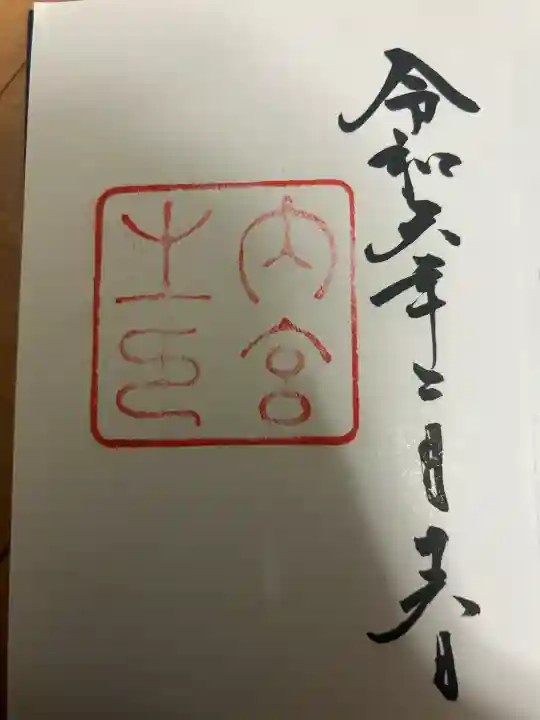 令和六年二月十六日
内宮
之印